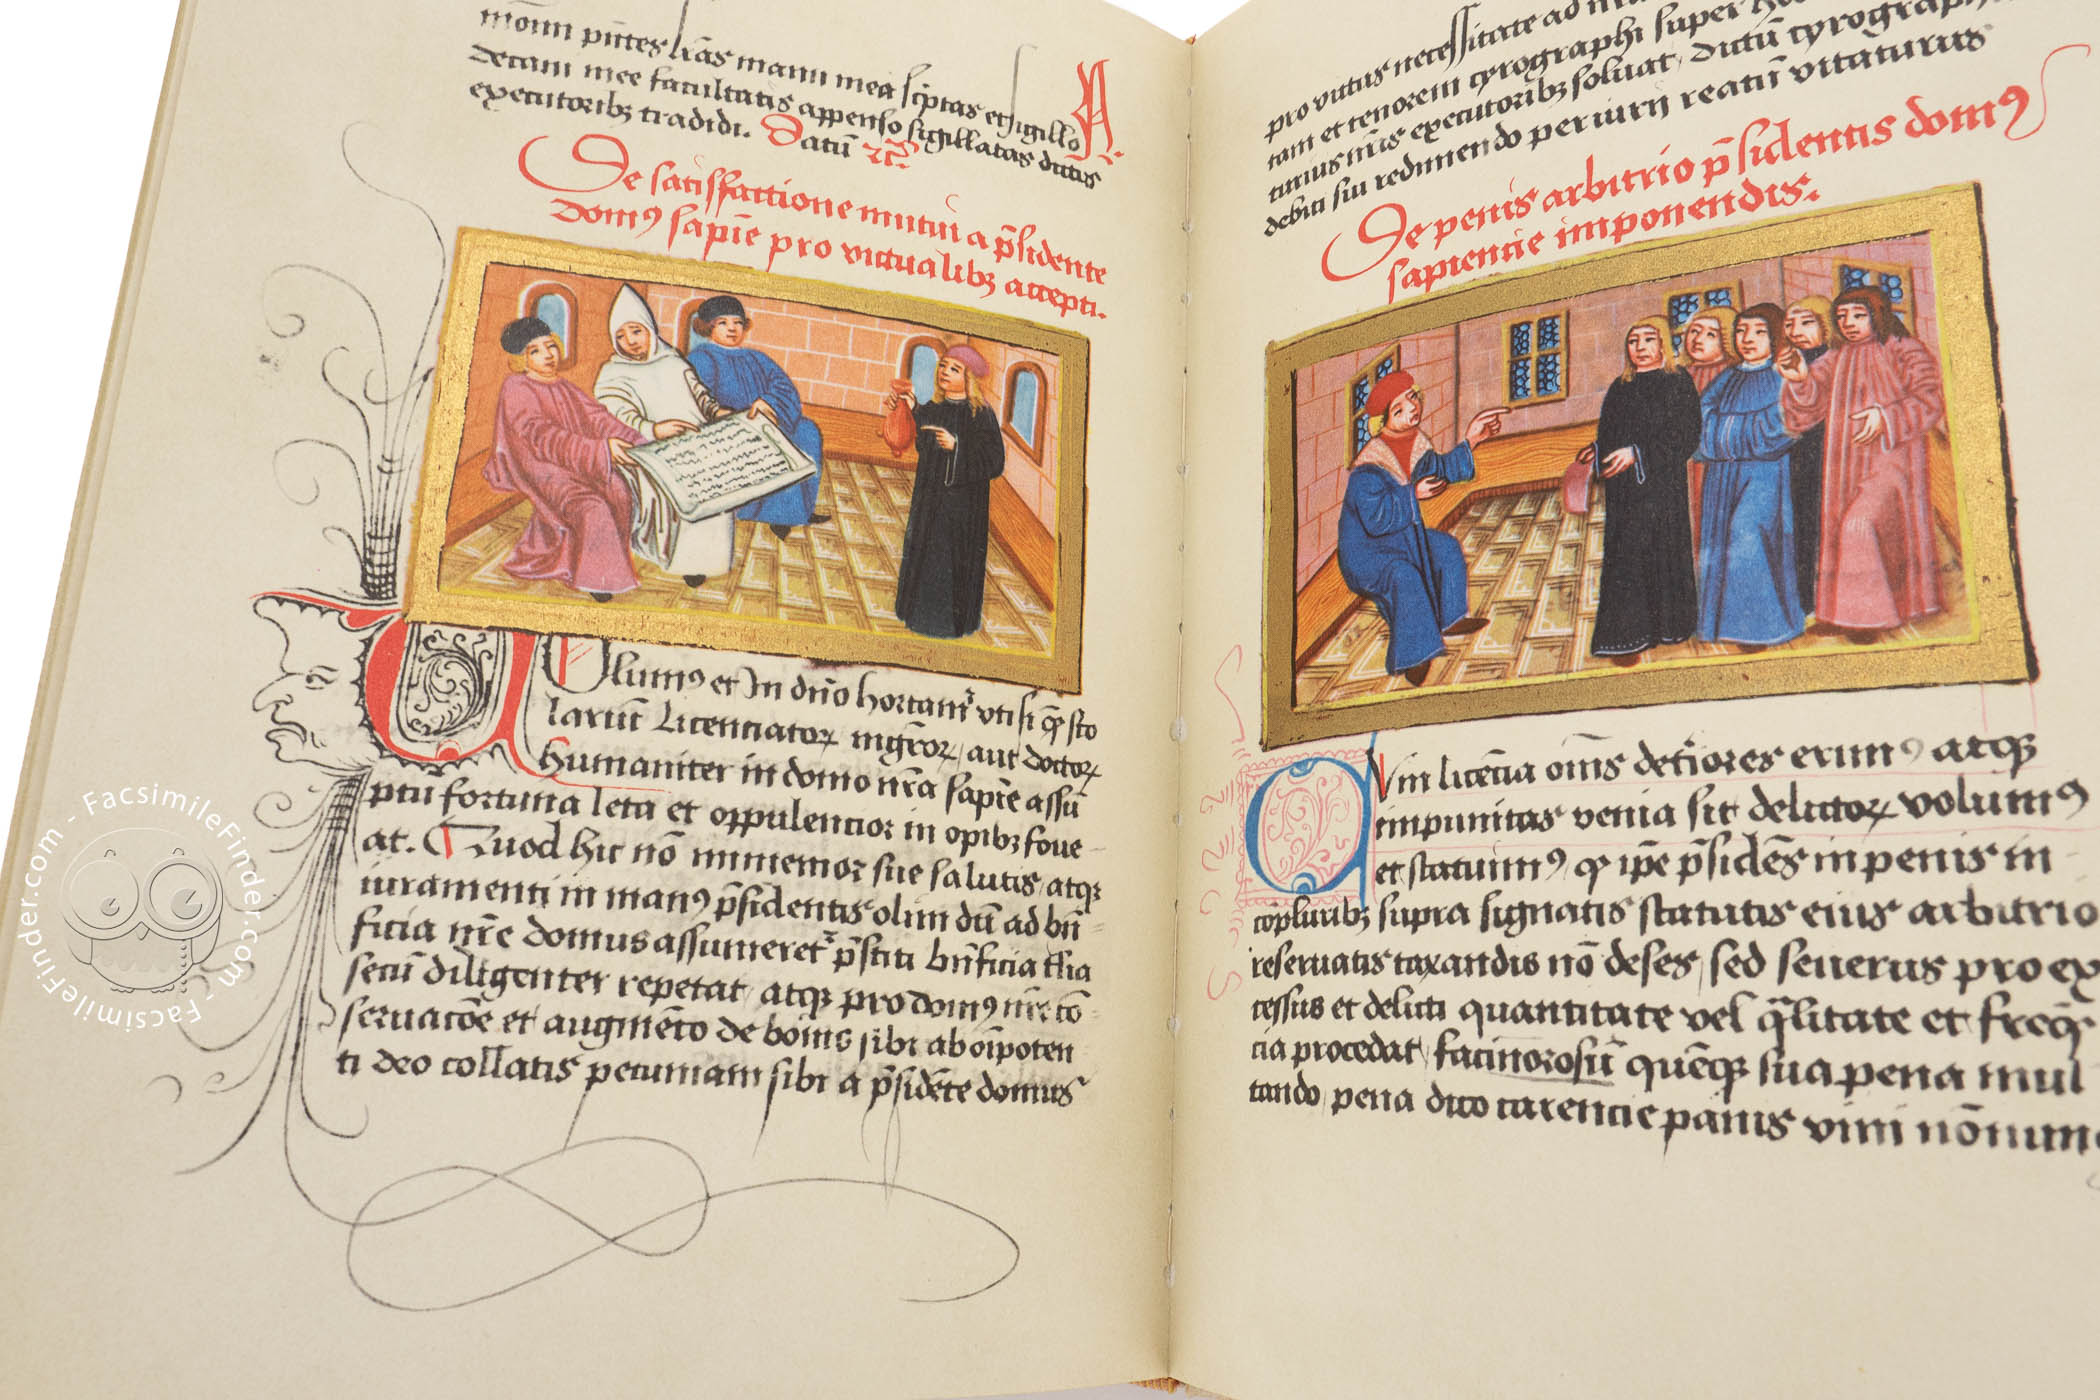 mōnn pñtes lr̄as manu mea sc̄ptas et sigillo
decani mee facultatis appenso sigillatas dictis
executoribꝫ tradidi. Datū ꝛc̄.
De satisffactione mutui a p̄sidente
domꝰ sapīe pro victualibꝫ accepti.
Uolumꝰ et in dn̄o hortamr̄ vti si q̄s sco
lariū Licenciatoꝝ mgr̄oꝝ aut doctoꝝ
humaniter in domo nr̄a sapīe assū
ptū fortuna leta et oppulencior in opibꝫ foue
at. Quod hic nō inmemor sue salutis atqꝫ
iuramenti in manꝰ p̄sidentis olim dū ad bn̄
ficia nr̄e domus assumeretr̄ p̄stiti bn̄ficia
secū diligenter repetat atqꝫ pro domꝰ nr̄e cō
seruacōe et augmēto de bonis sibi ab oīpoten
ti deo collatis pecuniam sibi a p̄sidēte domus
pro victus necessitate ad
tam et tenorem cyrographi super
turius nr̄is executoribꝫ soluat, dictū cyrograph
debiti sui redimendo periurij reatū vitaturus
De penis arbitrio p̄sidentis domꝰ
sapientie imponendis.
Qvm licēcia oīns det̓iores erimꝰ atqꝫ
impunitas venia sit delictoꝝ volumꝰ
et statuimꝰ, ꝙ ip̄e p̄sidēs in penis in
cōpluribꝫ supra signatis statutis eius arbitrio
reseruatis taxandis nō deses, sed seuerus pro ex
cessus et delicti quantitate vel q̄litate et freq̄
cia procedat, facinorosū quēqꝫ sua pena mul
tando, pena dico carencie panis vini nō
FacsimileFinder.com - FacsimileFinder.com - FacsimileFinder.com